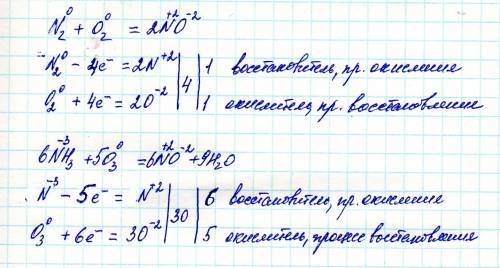 N₂⁰ + O₂⁰ = 2N⁺²O⁻²
N₂⁰ - 4e⁻ = 2N⁺² | 4 | 1 восстановитель, пр. окисление
O₂⁰ + 4e⁻ = 2O⁻² | 1 окислитель, пр. восстановление
6N⁻³H₃ + 5O₃⁰ = 6N⁺²O⁻² + 9H₂O
N⁻³ - 5e⁻ = N⁺² | 30 | 6 восстановитель, пр. окисление
O₃⁰ + 6e⁻ = 3O⁻² | 5 окислитель, процесс восстановления